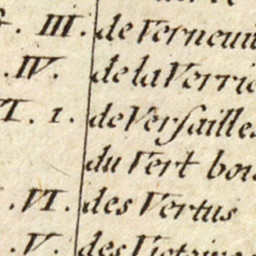 . III. de Verneuil
. IV. de la Verri
VI. 1. de Verſailles
du Vert bou
. VI. des Vertus
. V. des Victoires